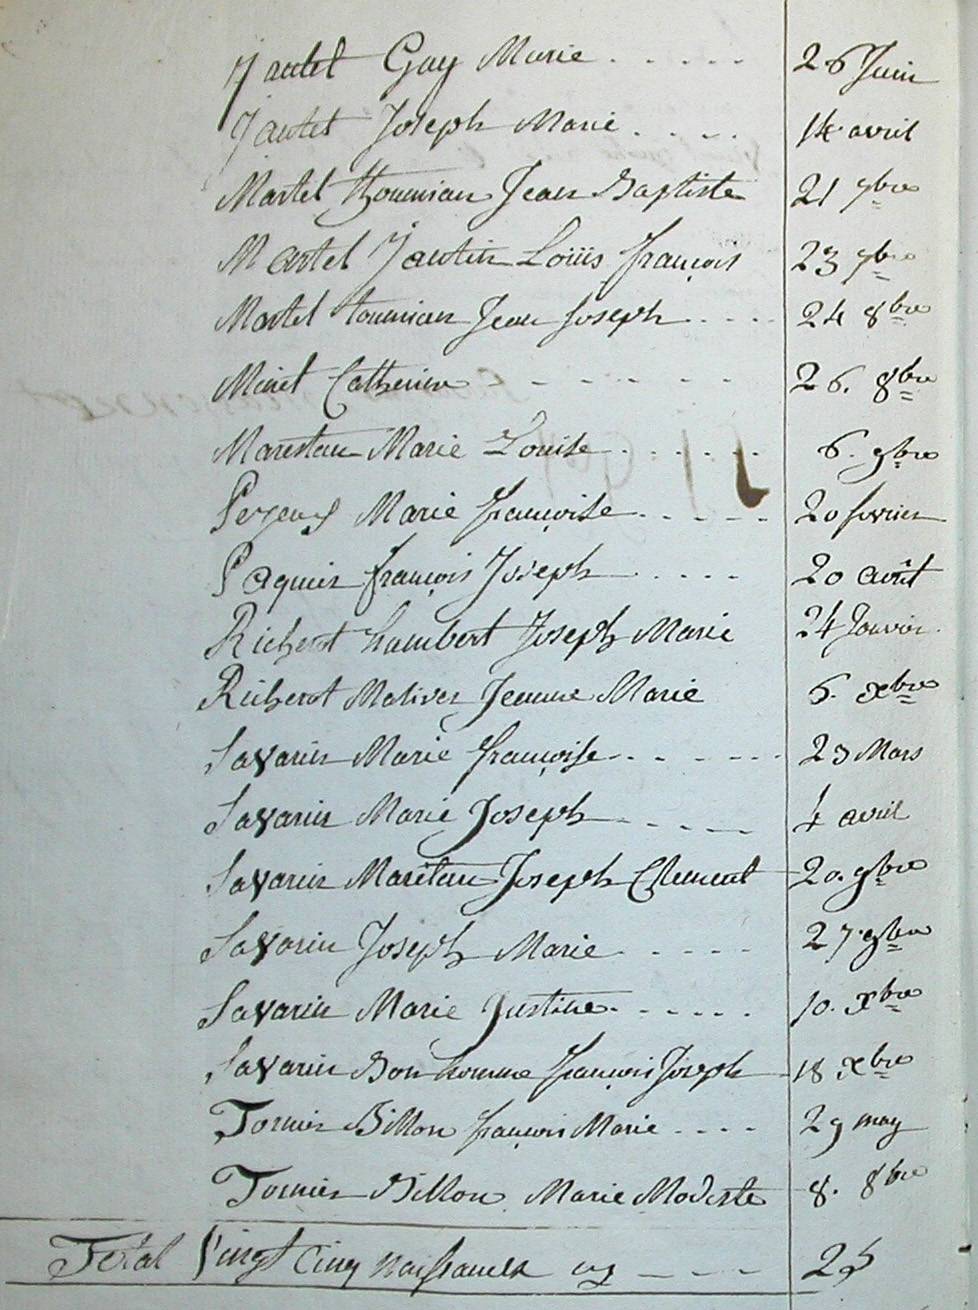 Jantet Guy Marie . . . . . 26 Juin
Jantet Joseph Marie . . . . 14 avril
Martel Thournian Jean Baptiste 21 7bre
Martel Jantin Loüis françois 23 7bre
Martel tournian Jean Joseph . . . . 24 8bre
Minet Catherine - - - - - - 26. 8bre
Maretan Marie Louise . . . . . . 6. 9bre
Marie françoise . . . . . 20 fevrier
Paquier françois Joseph . . . . 20 août
Richerot Lambert Joseph Marie 24 Janvier
Richerot Jeanne Marie 6. xbre
Savarin Marie françoise . . . . . . 23 Mars
Savarin Marie Joseph . . . . 4 avril
Savarin Maritan Joseph Clement 20. 9bre
Savarin Joseph Marie . . . . 27 9bre
Savarin Marie Justine . . . . . . 10. Xbre
Savarin Bon homme françois Joseph 18 xbre
Tornier Billon françois Marie . . . . 29 may
Tornier Billon Marie Modeste 8. 8bre
Total Vingt Cinq Naissances cy - - - - 25